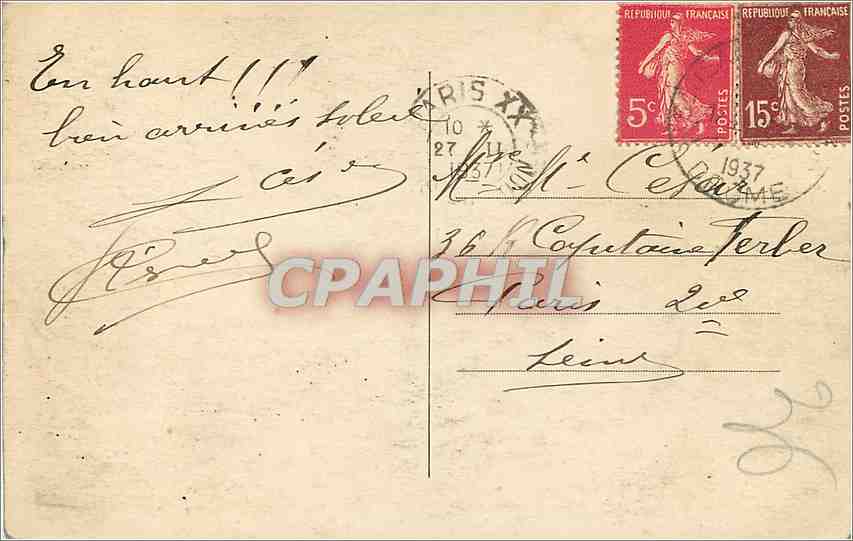 En haut !!!
bien arrivés soleil
RÉPUBLIQUE FRANÇAISE
5c
POSTES
RÉPUBLIQUE FRANÇAISE
15c
POSTES
PARIS XX
10 *
27 II
1937
1937
DOME
36 R Capitaine Ferber
Paris 20e
Seine
CPAPHIL